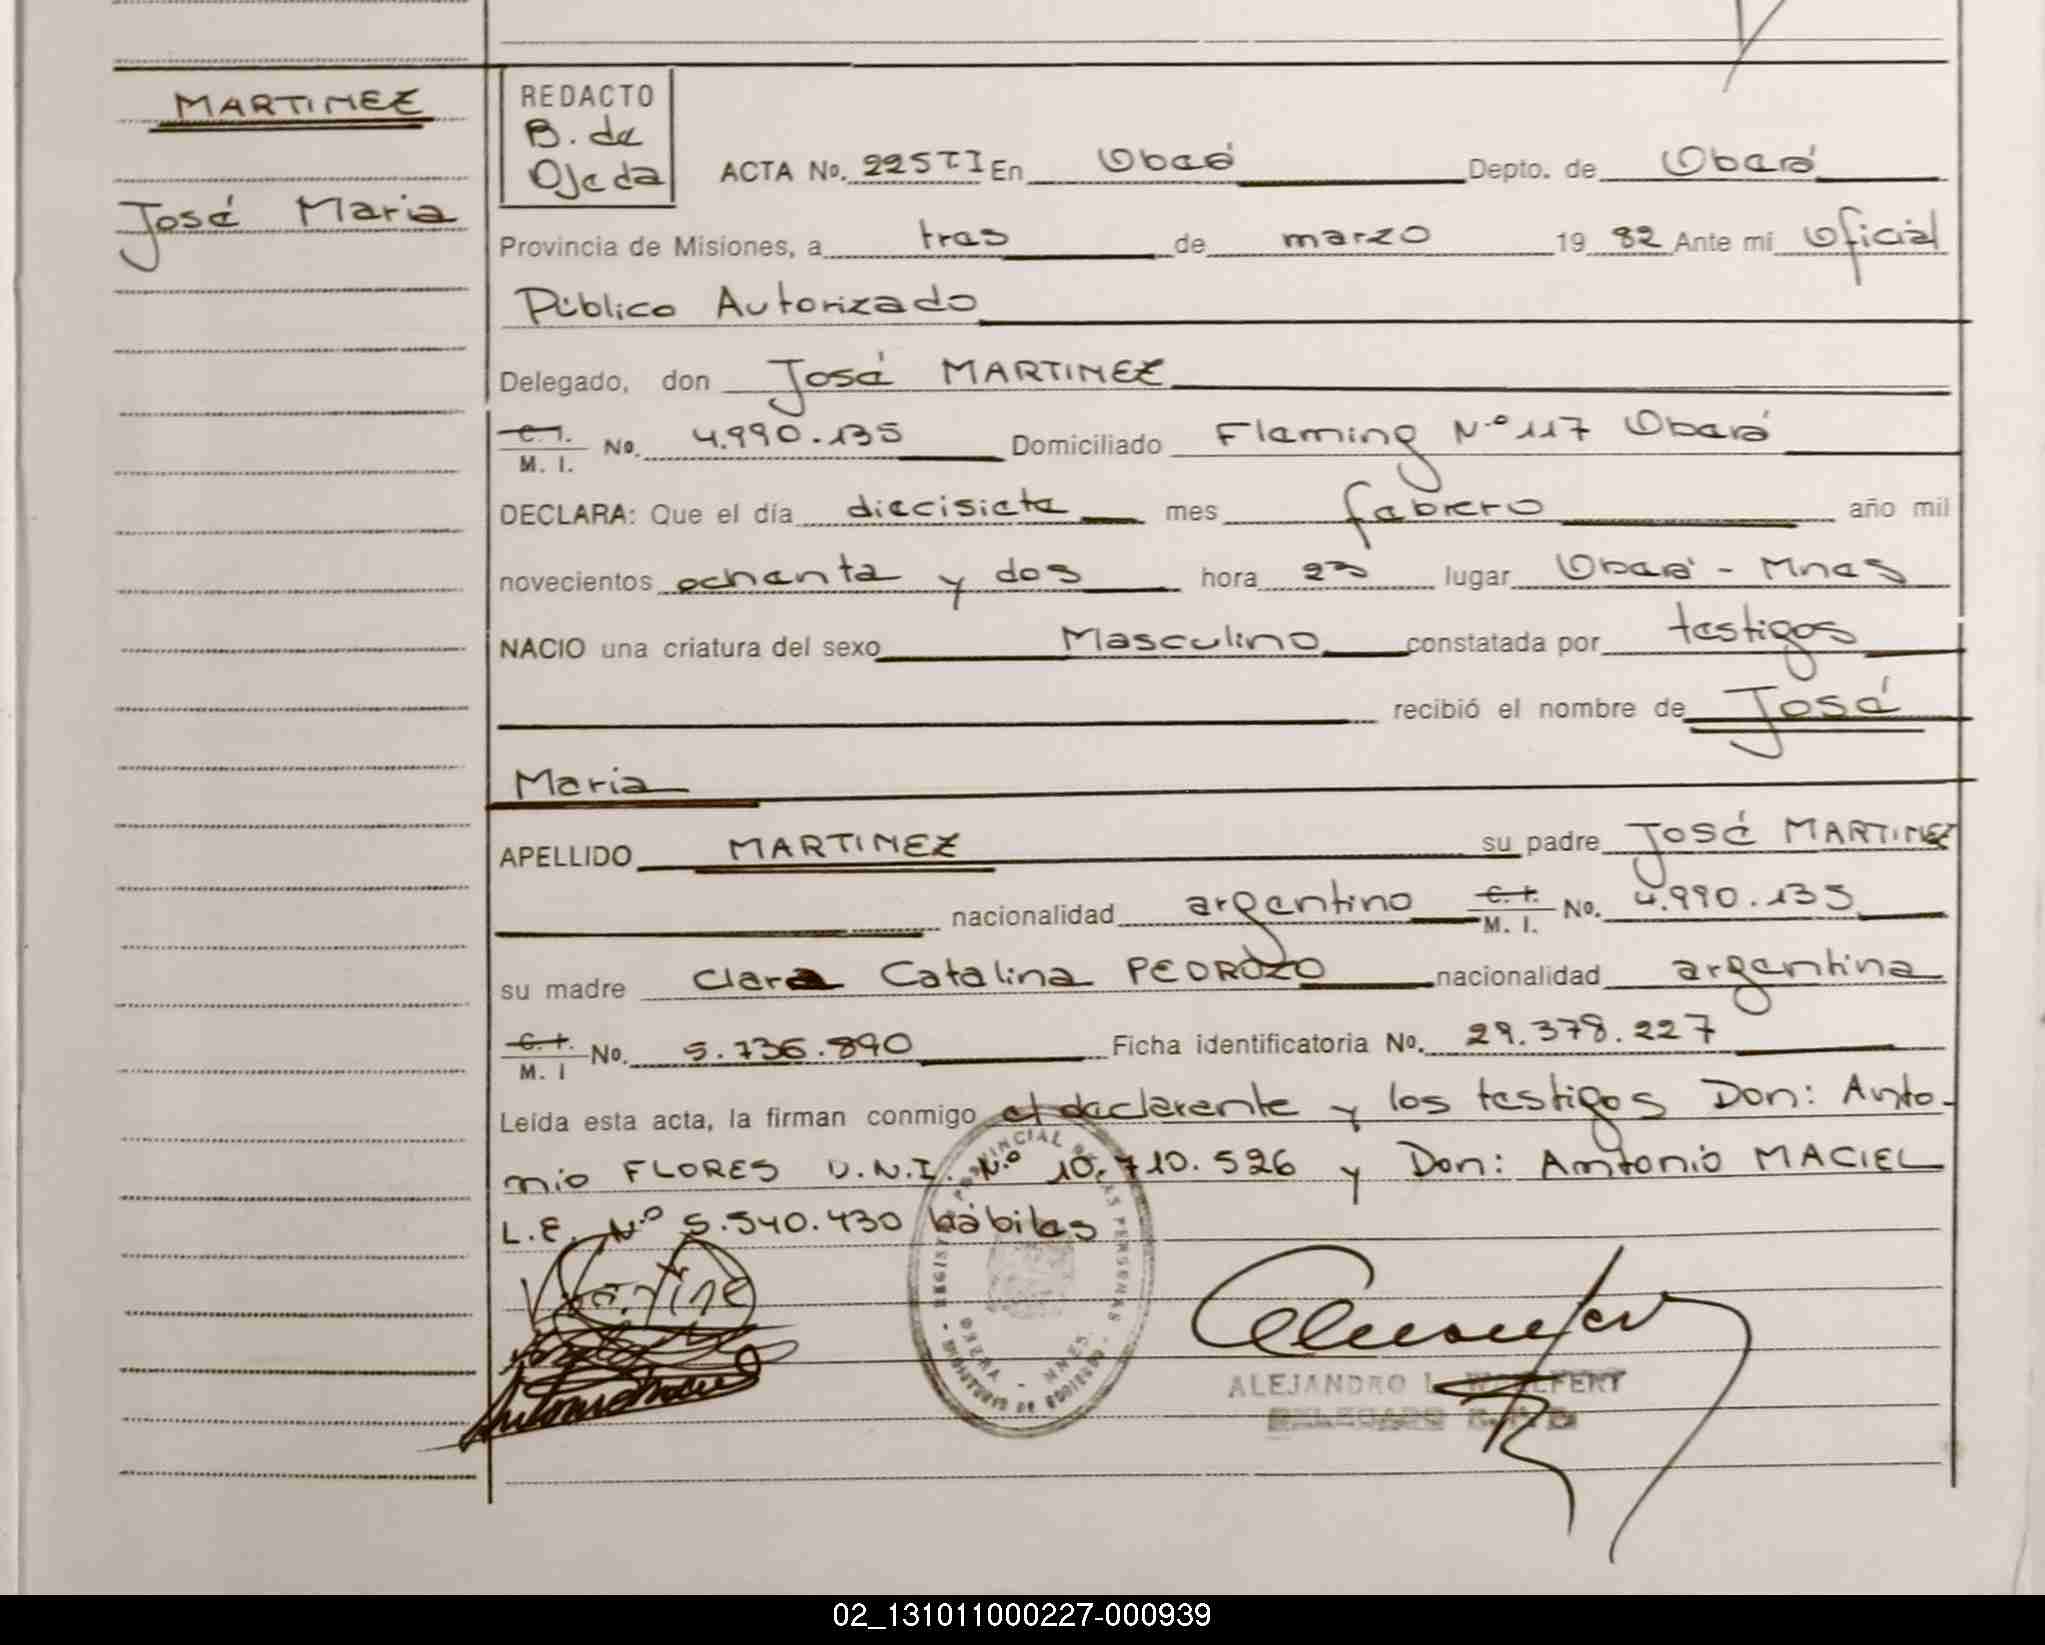 MARTINEZ
José Maria
REDACTO
B. de
Ojeda
ACTA No. 225TI En Oberá Depto. de Oberá
Provincia de Misiones, a tres de marzo 19 82 Ante mi Oficial
Público Autorizado
Delegado, don José MARTINEZ
C. I.
M. I. No. 4.990.135 Domiciliado Fleming Nº 117 Oberá
DECLARA: Que el día diecisiete mes febrero año mil
novecientos ochenta y dos hora lugar Oberá - Mnes
NACIO una criatura del sexo Masculino constatada por testigos
recibió el nombre de José
Maria
APELLIDO MARTINEZ su padre José MARTINEZ
nacionalidad argentino C. I. M. I. No. 4.990.135
su madre Clara Catalina PEDROZO nacionalidad argentina
C. I.
M. I No. 5.736.890 Ficha identificatoria No. 29.378.227
Leída esta acta, la firman conmigo el declarente y los testigos Don: Anto-
nio FLORES D.N.I. Nº 10.710.526 y Don: Antonio MACIEL
L.E. Nº 5.540.430 hábiles
REGISTRO PROVINCIAL DE LAS PERSONAS
OBERA - MNES.
MINISTERIO DE GOBIERNO
ALEJANDRO L. WOLFERT
DELEGADO
02_131011000227-000939